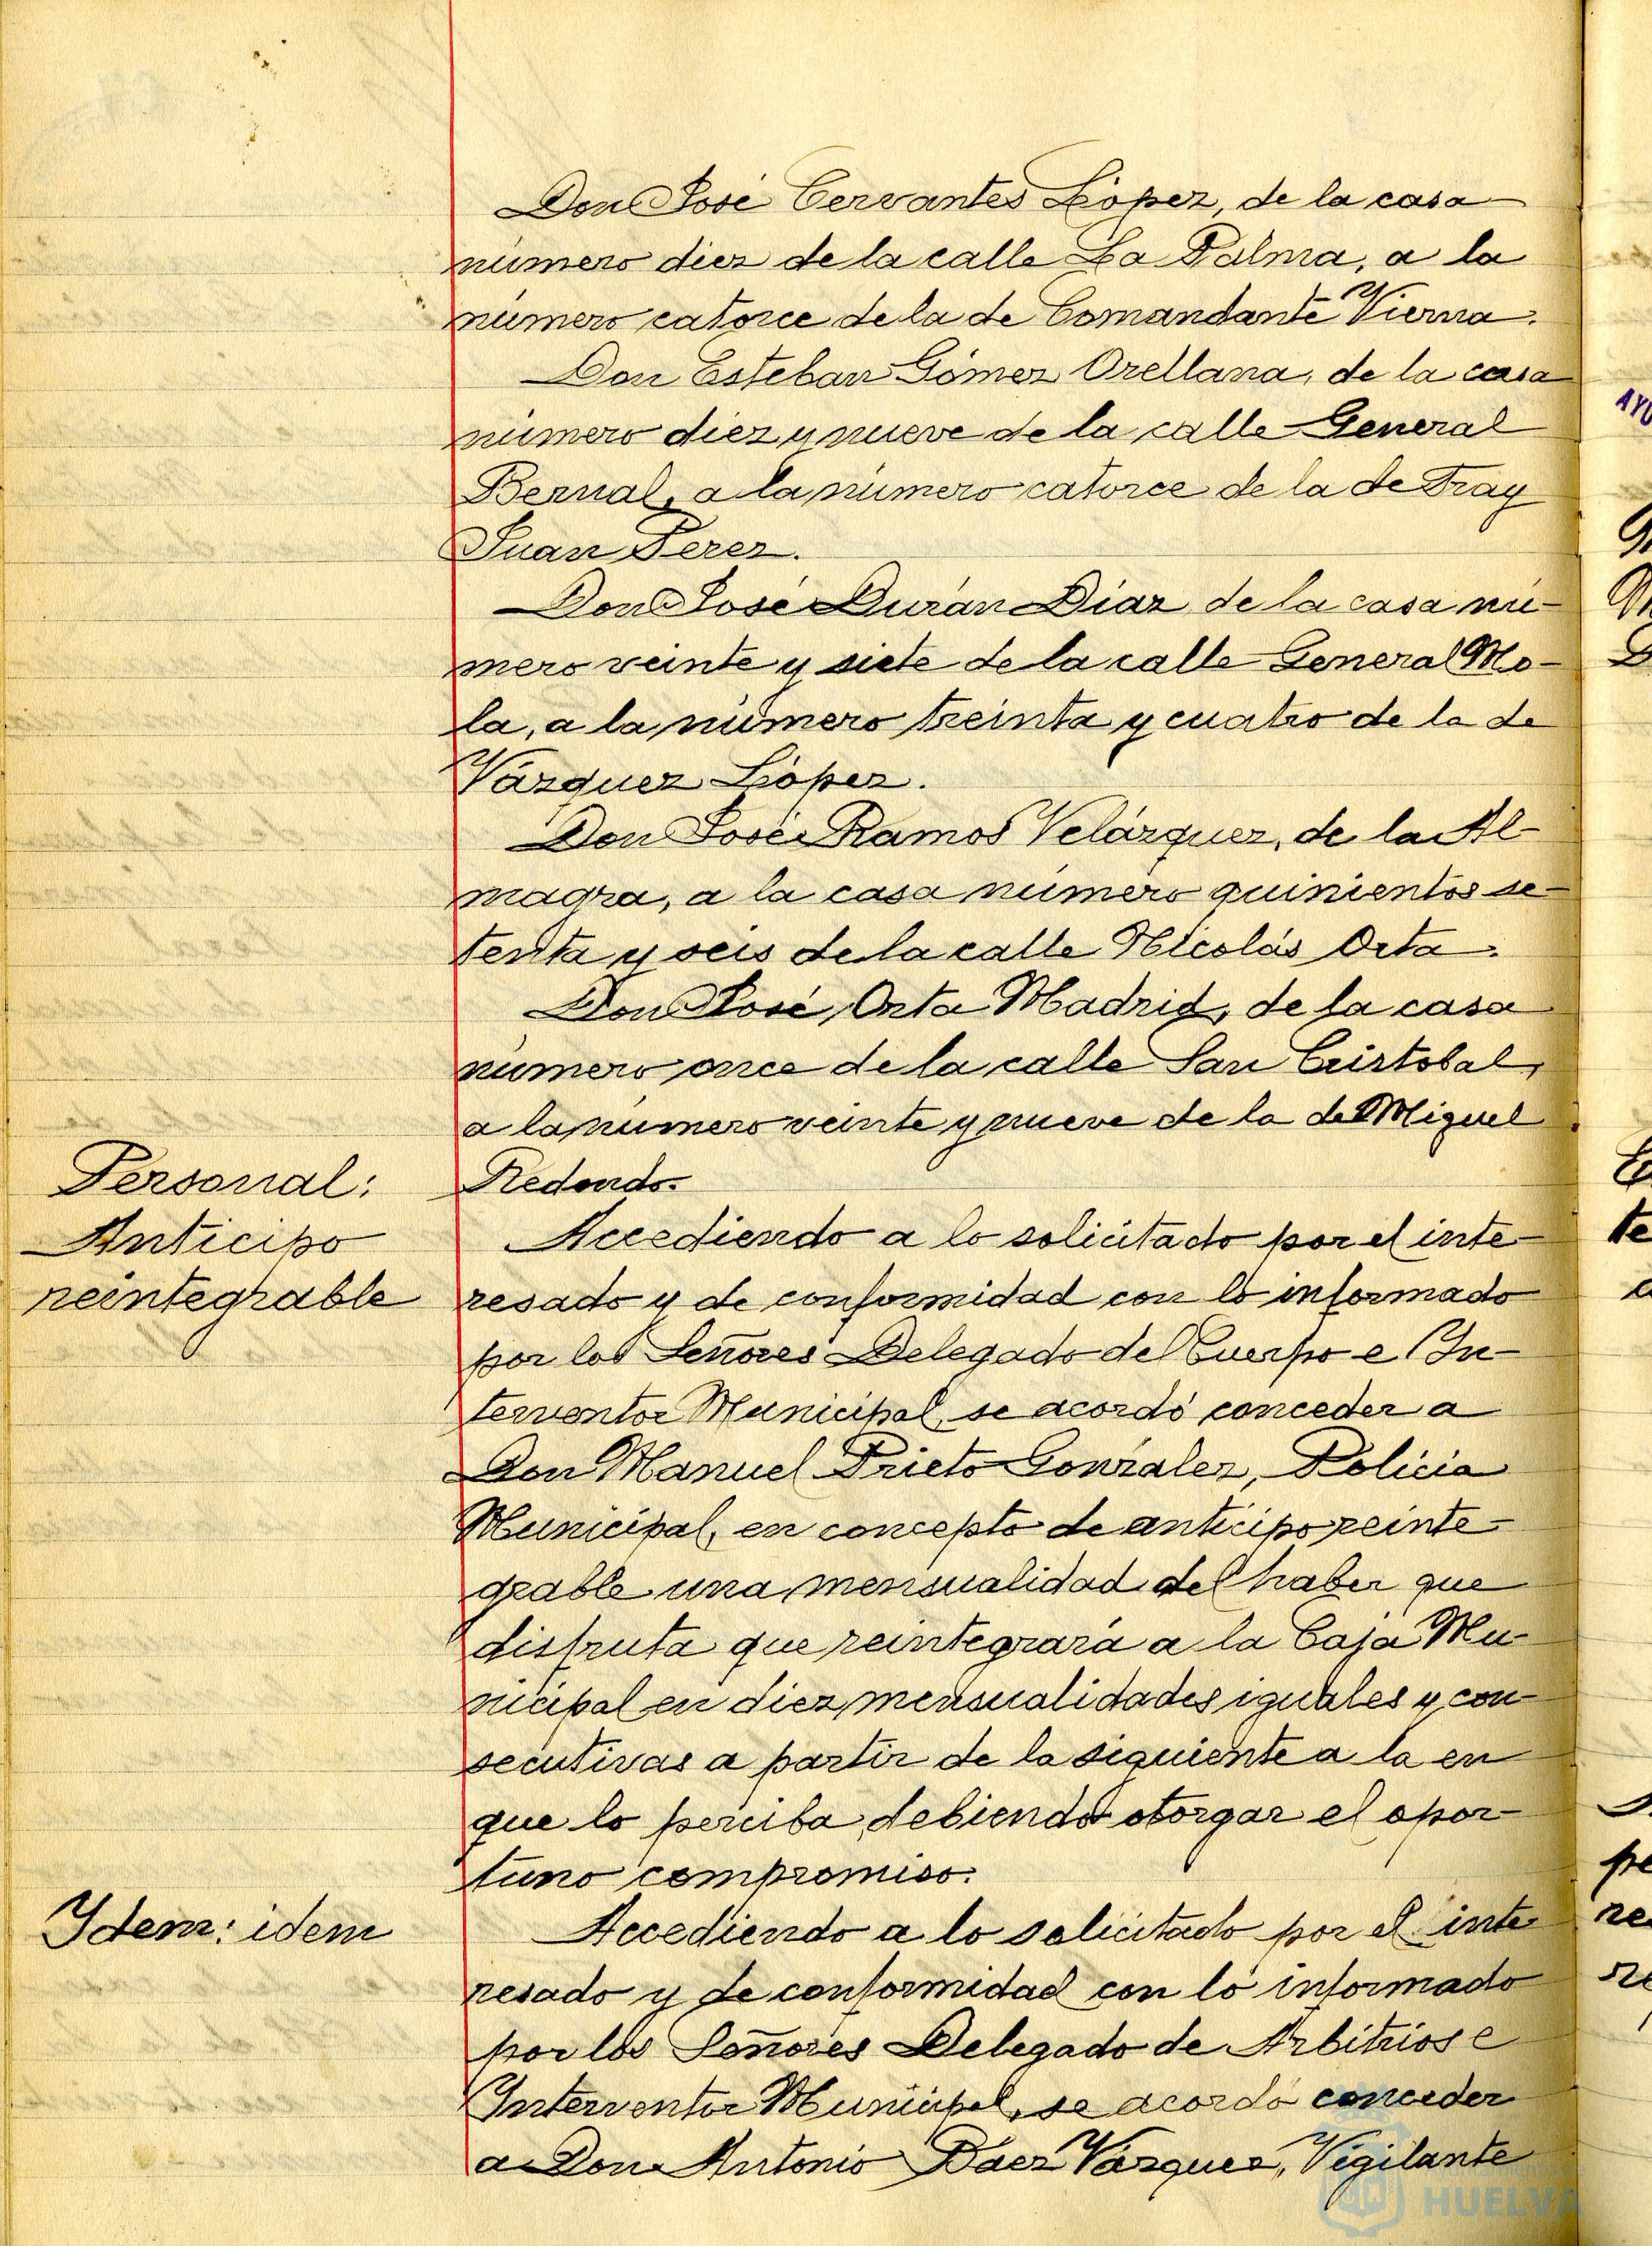 Don José Cervantes López, de la casa
número diez de la calle La Palma, a la
número catorce de la de Comandante Vierna.
Don Esteban Gómez Orellana, de la casa
número diez y nueve de la calle General
Bernal, a la número catorce de la de Fray
Juan Perez.
Don José Durán Díaz de la casa nú-
mero veinte y siete de la calle General Mo-
la, a la número treinta y cuatro de la de
Vázquez López.
Don José Ramos Velázquez, de la Al-
magra, a la casa número quinientos se-
tenta y seis de la calle Nicolás Orta.
Don José Orta Madrid, de la casa
número once de la calle San Cristobal,
a la número veinte y nueve de la de Miguel
Redondo.
Personal:
Anticipo
reintegrable
Accediendo a lo solicitado por el inte-
resado y de conformidad con lo informado
por los Señores Delegado del Cuerpo e In-
terventor Municipal, se acordó conceder a
Don Manuel Prieto González, Policia
Municipal, en concepto de anticipo reinte-
grable una mensualidad del haber que
disfruta que reintegrará a la Caja Mu-
nicipal en diez mensualidades iguales y con-
secutivas a partir de la siguiente a la en
que lo perciba, debiendo otorgar el opor-
tuno compromiso.
Ydem: idem
Accediendo a lo solicitado por el inte-
resado y de conformidad con lo informado
por los Señores Delegado de Arbitrios e
Interventor Municipal, se acordó conceder
a Don Antonio Báez Vázquez, Vigilante
HUELVA